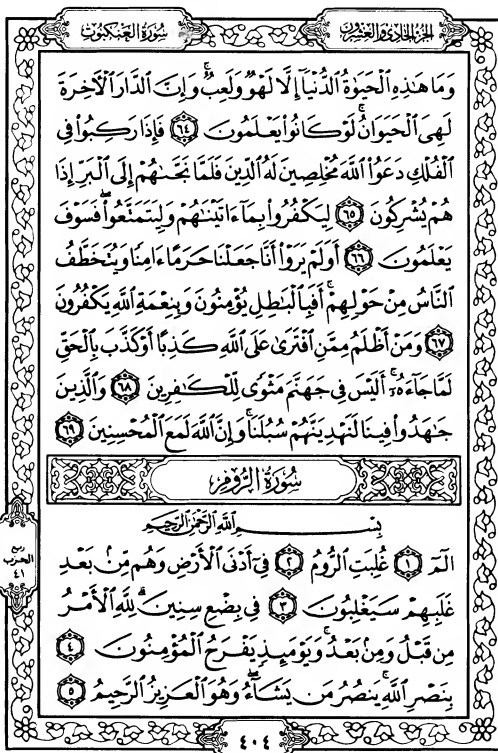 الجزء الحادي والعشرون
سورة العنكبوت
وَمَا هَٰذِهِ ٱلْحَيَوٰةُ ٱلدُّنْيَآ إِلَّا لَهْوٌ وَلَعِبٌ ۚ وَإِنَّ ٱلدَّارَ ٱلْءَاخِرَةَ
لَهِىَ ٱلْحَيَوَانُ ۚ لَوْ كَانُوا۟ يَعْلَمُونَ ٦٤ فَإِذَا رَكِبُوا۟ فِى
ٱلْفُلْكِ دَعَوُا۟ ٱللَّهَ مُخْلِصِينَ لَهُ ٱلدِّينَ فَلَمَّا نَجَّىٰهُمْ إِلَى ٱلْبَرِّ إِذَا
هُمْ يُشْرِكُونَ ٦٥ لِيَكْفُرُوا۟ بِمَآ ءَاتَيْنَٰهُمْ وَلِيَتَمَتَّعُوا۟ ۖ فَسَوْفَ
يَعْلَمُونَ ٦٦ أَوَلَمْ يَرَوْا۟ أَنَّا جَعَلْنَا حَرَمًا ءَامِنًا وَيُتَخَطَّفُ
ٱلنَّاسُ مِنْ حَوْلِهِمْ ۚ أَفَبِٱلْبَٰطِلِ يُؤْمِنُونَ وَبِنِعْمَةِ ٱللَّهِ يَكْفُرُونَ
٦٧ وَمَنْ أَظْلَمُ مِمَّنِ ٱفْتَرَىٰ عَلَى ٱللَّهِ كَذِبًا أَوْ كَذَّبَ بِٱلْحَقِّ
لَمَّا جَآءَهُۥٓ ۚ أَلَيْسَ فِى جَهَنَّمَ مَثْوًى لِّلْكَٰفِرِينَ ٦٨ وَٱلَّذِينَ
جَٰهَدُوا۟ فِينَا لَنَهْدِيَنَّهُمْ سُبُلَنَا ۚ وَإِنَّ ٱللَّهَ لَمَعَ ٱلْمُحْسِنِينَ ٦٩
سُورَةُ الرُّومِ
بِسْمِ ٱللَّهِ ٱلرَّحْمَٰنِ ٱلرَّحِيمِ
الٓمٓ ١ غُلِبَتِ ٱلرُّومُ ٢ فِىٓ أَدْنَى ٱلْأَرْضِ وَهُم مِّنۢ بَعْدِ
غَلَبِهِمْ سَيَغْلِبُونَ ٣ فِى بِضْعِ سِنِينَ ۗ لِلَّهِ ٱلْأَمْرُ
مِن قَبْلُ وَمِنۢ بَعْدُ ۚ وَيَوْمَئِذٍ يَفْرَحُ ٱلْمُؤْمِنُونَ ٤
بِنَصْرِ ٱللَّهِ ۚ يَنصُرُ مَن يَشَآءُ ۖ وَهُوَ ٱلْعَزِيزُ ٱلرَّحِيمُ ٥
ربع
الحزب
٤١
٤٠٤